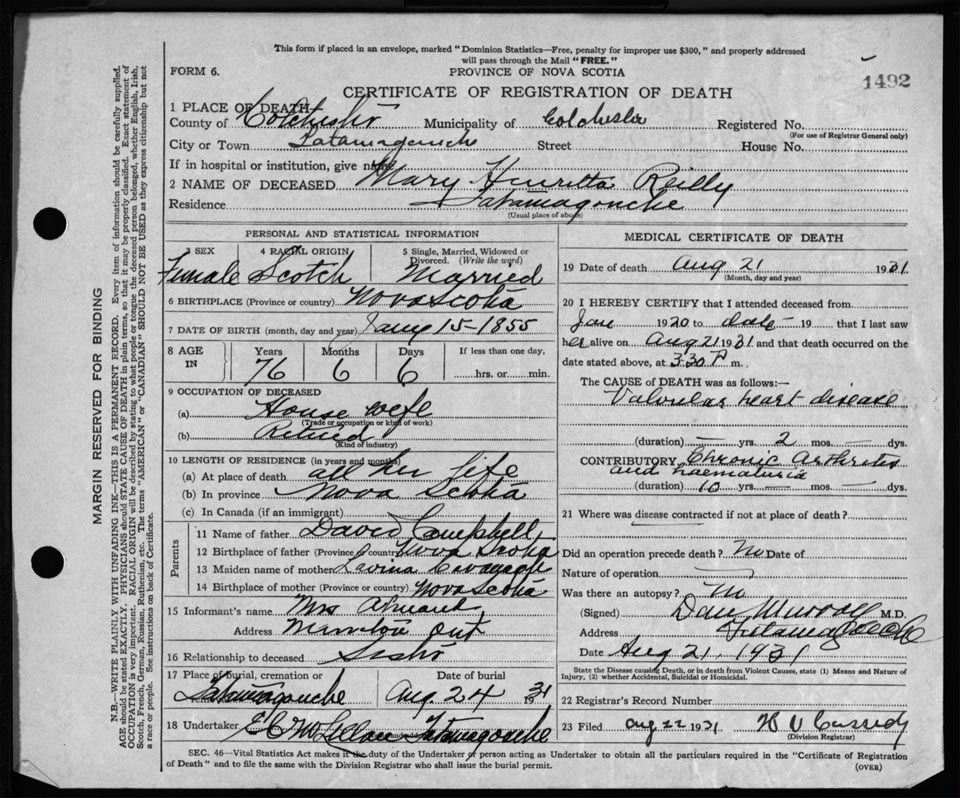 This form if placed in an envelope, marked "Dominion Statistics—Free, penalty for improper use $300," and properly addressed
will pass through the Mail "FREE."
FORM 6.
PROVINCE OF NOVA SCOTIA
1492
CERTIFICATE OF REGISTRATION OF DEATH
1 PLACE OF DEATH
County of Colchester Municipality of Colchester Registered No.
(For use of Registrar General only)
City or Town Tatamagouche Street House No.
If in hospital or institution, give name
2 NAME OF DECEASED Mary Henrietta Reilly
Residence Tatamagouche
(Usual place of abode)
PERSONAL AND STATISTICAL INFORMATION
3 SEX 4 RACIAL ORIGIN 5 Single, Married, Widowed or
Divorced. (Write the word)
Female Scotch Married
6 BIRTHPLACE (Province or country) Nova Scotia
7 DATE OF BIRTH (month, day and year) Jany 15-1855
8 AGE IN Years Months Days If less than one day,
76 6 6 hrs. or min.
9 OCCUPATION OF DECEASED
(a) House wife
(Trade or occupation or kind of work)
(b) Retired
(Kind of industry)
10 LENGTH OF RESIDENCE (in years and months)
(a) At place of death all her life
(b) In province Nova Scotia
(c) In Canada (if an immigrant)
Parents
11 Name of father David Campbell
12 Birthplace of father (Province or country) Nova Scotia
13 Maiden name of mother Lavina Cavanagh
14 Birthplace of mother Nova Scotia
15 Informant's name Mrs
Address Ont
16 Relationship to deceased Sister
17 Place of burial, cremation or Date of burial
Tatamagouche Aug. 24 1931
18 Undertaker Tatamagouche
MEDICAL CERTIFICATE OF DEATH
19 Date of death Aug 21 1931
(Month, day and year)
20 I HEREBY CERTIFY that I attended deceased from
Jan 1920 to date 19 that I last saw
her alive on Aug 21 1931 and that death occurred on the
date stated above, at 3.30 P m.
The CAUSE of DEATH was as follows:—
Valvular heart disease
(duration) — yrs. 2 mos. — dys.
CONTRIBUTORY Chronic Arthritis
and haematuria
(duration) 10 yrs. — mos. — dys.
21 Where was disease contracted if not at place of death?
Did an operation precede death? No Date of
Nature of operation
Was there an autopsy? No
(Signed) Dan Murray M.D.
Address Tatamagouche
Date Aug 21, 1931
State the Disease causing Death, or in death from Violent Causes, state (1) Means and Nature of
Injury, (2) whether Accidental, Suicidal or Homicidal.
22 Registrar's Record Number
23 Filed Aug 22 1931 Cassidy
(Division Registrar)
SEC. 46—Vital Statistics Act makes it the duty of the Undertaker or person acting as Undertaker to obtain all the particulars required in the "Certificate of Registration
of Death" and to file the same with the Division Registrar who shall issue the burial permit.
(OVER)
MARGIN RESERVED FOR BINDING
N.B.—WRITE PLAINLY WITH UNFADING INK—THIS IS A PERMANENT RECORD. Every item of information should be carefully supplied.
AGE should be stated EXACTLY. PHYSICIANS should STATE CAUSE OF DEATH in plain terms, so that it may be properly classified. Exact statement of
OCCUPATION is very important. RACIAL ORIGIN will be described by stating to what people or tongue the deceased person belonged, whether English, Irish,
Scotch, French, German, Russian, Ruthenian, etc. The terms "AMERICAN" or "CANADIAN" SHOULD NOT BE USED as they express citizenship but not
a race or people. See instructions on back of Certificate.